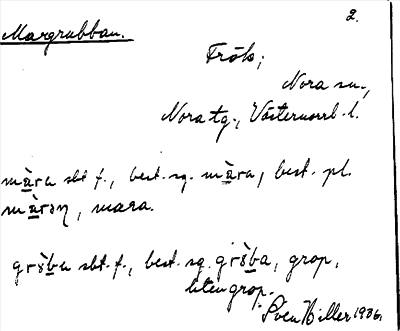 2.
Margrubban.
Frök;
Nora sn.,
Nora tg., Västernorrl. l.
mära sbt f., best. sg. mära, best. pl.
märəṇ, mara.
gröba sbt. f., best. sg. gröba, grop,
liten grop.
Sven Hiller 1936.